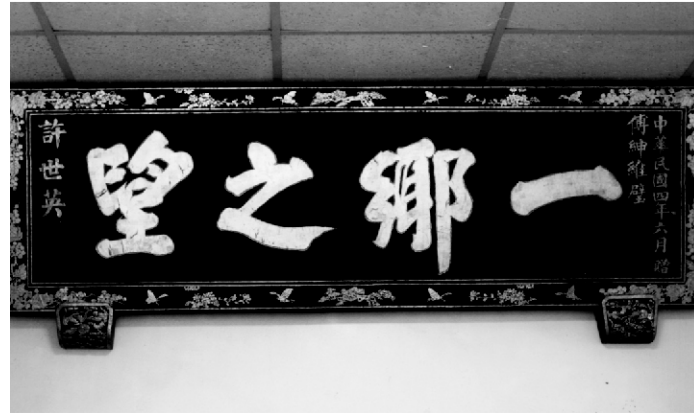 中華民國四年六月贈
傅紳維璧
一鄉之朢
許世英